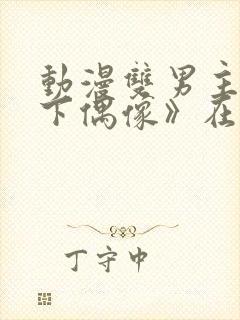 動漫雙男主
下偶像》在
丁守中